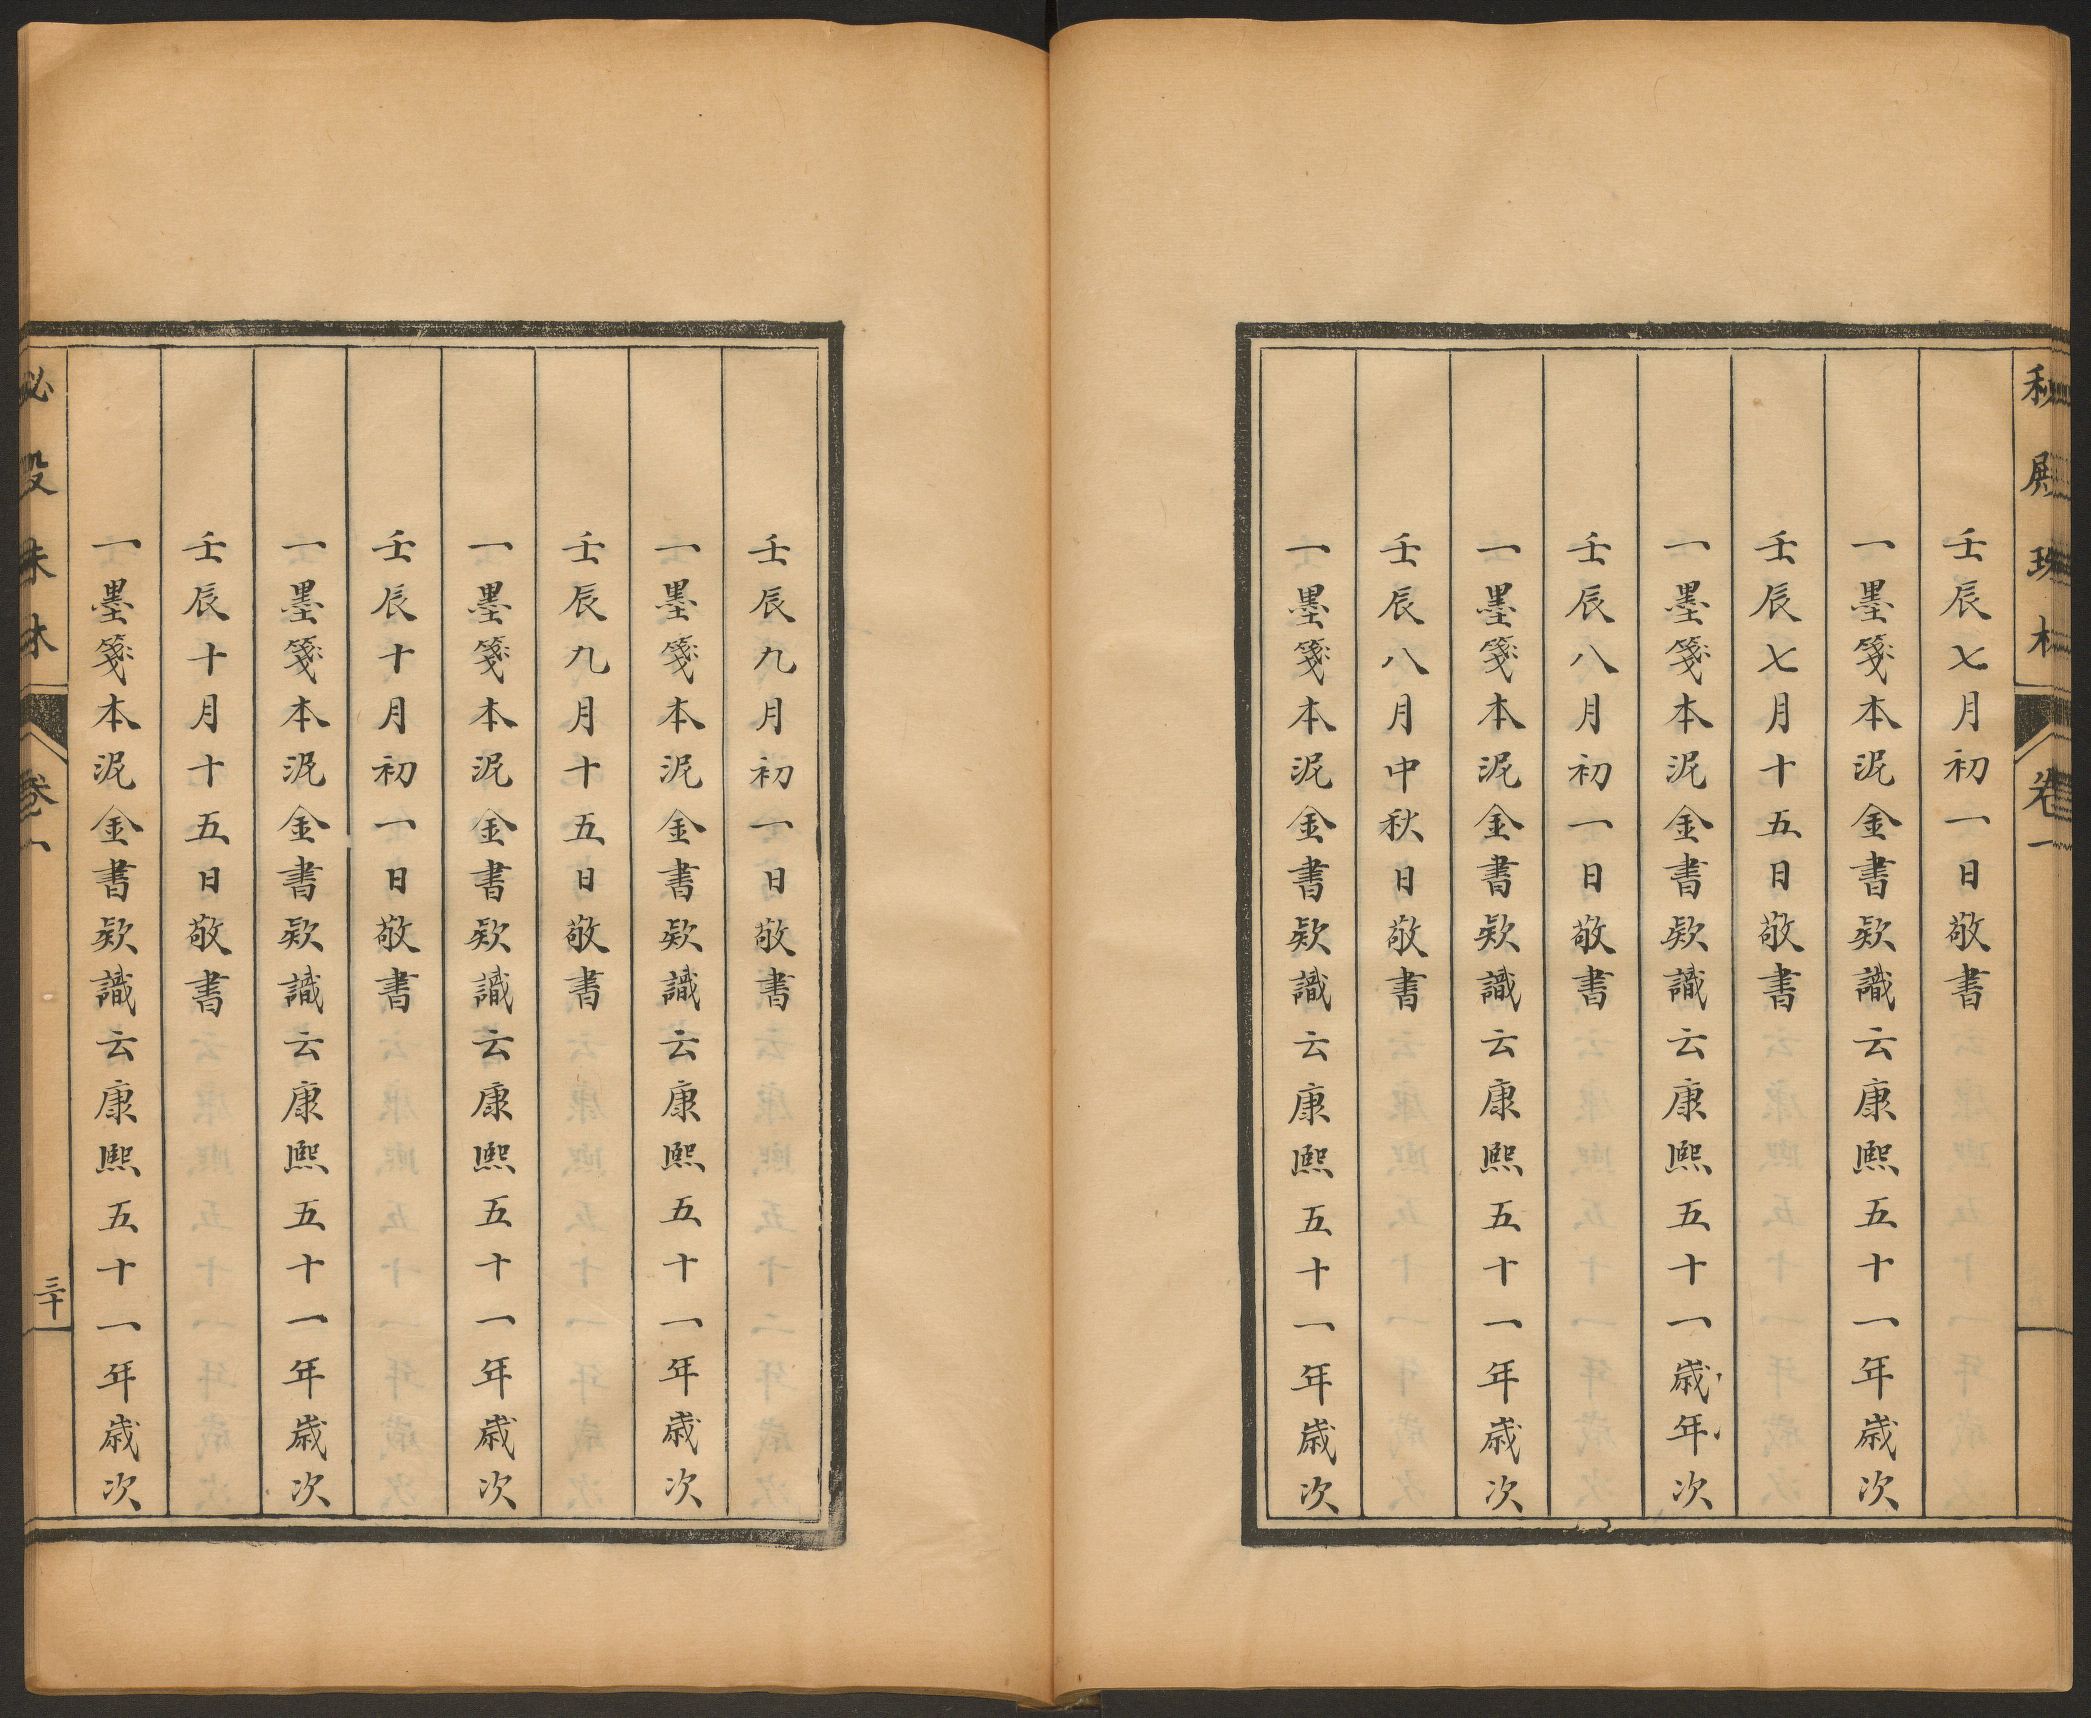 秘殿珠林 卷一
壬辰七月初一日敬書
一墨箋本泥金書欵識云康熙五十一年歲次
壬辰七月十五日敬書
一墨箋本泥金書欵識云康熙五十一歲年次
壬辰八月初一日敬書
一墨箋本泥金書欵識云康熙五十一年歲次
壬辰八月中秋日敬書
一墨箋本泥金書欵識云康熙五十一年歲次
壬辰九月初一日敬書
一墨箋本泥金書欵識云康熙五十一年歲次
壬辰九月十五日敬書
一墨箋本泥金書欵識云康熙五十一年歲次
壬辰十月初一日敬書
一墨箋本泥金書欵識云康熙五十一年歲次
壬辰十月十五日敬書
一墨箋本泥金書欵識云康熙五十一年歲次
秘殿珠林 卷一 三十